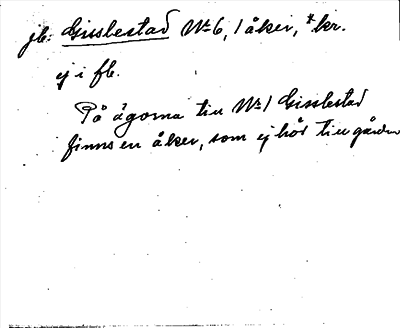 jb: Gisslestad No 6, 1 åker, *kr.
ej i fb.
På ägorna till No 1 Gisslestad
finns en åker, som ej hör till gården